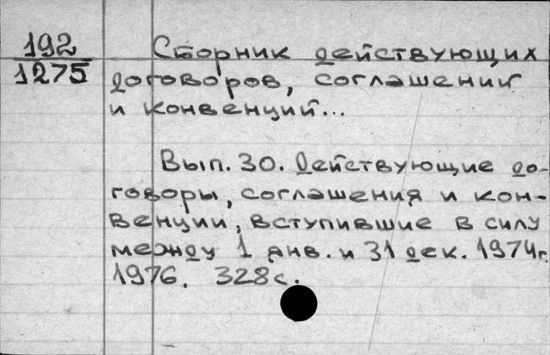 192
1275
Сборник действующих
договоров, соглашений
и конвенций...
Вып. 30. Действующие до-
говоры, соглашения и кон-
венции, вступившие в силу
между 1 янв. и 31 дек. 1974г.
1976. 328с.